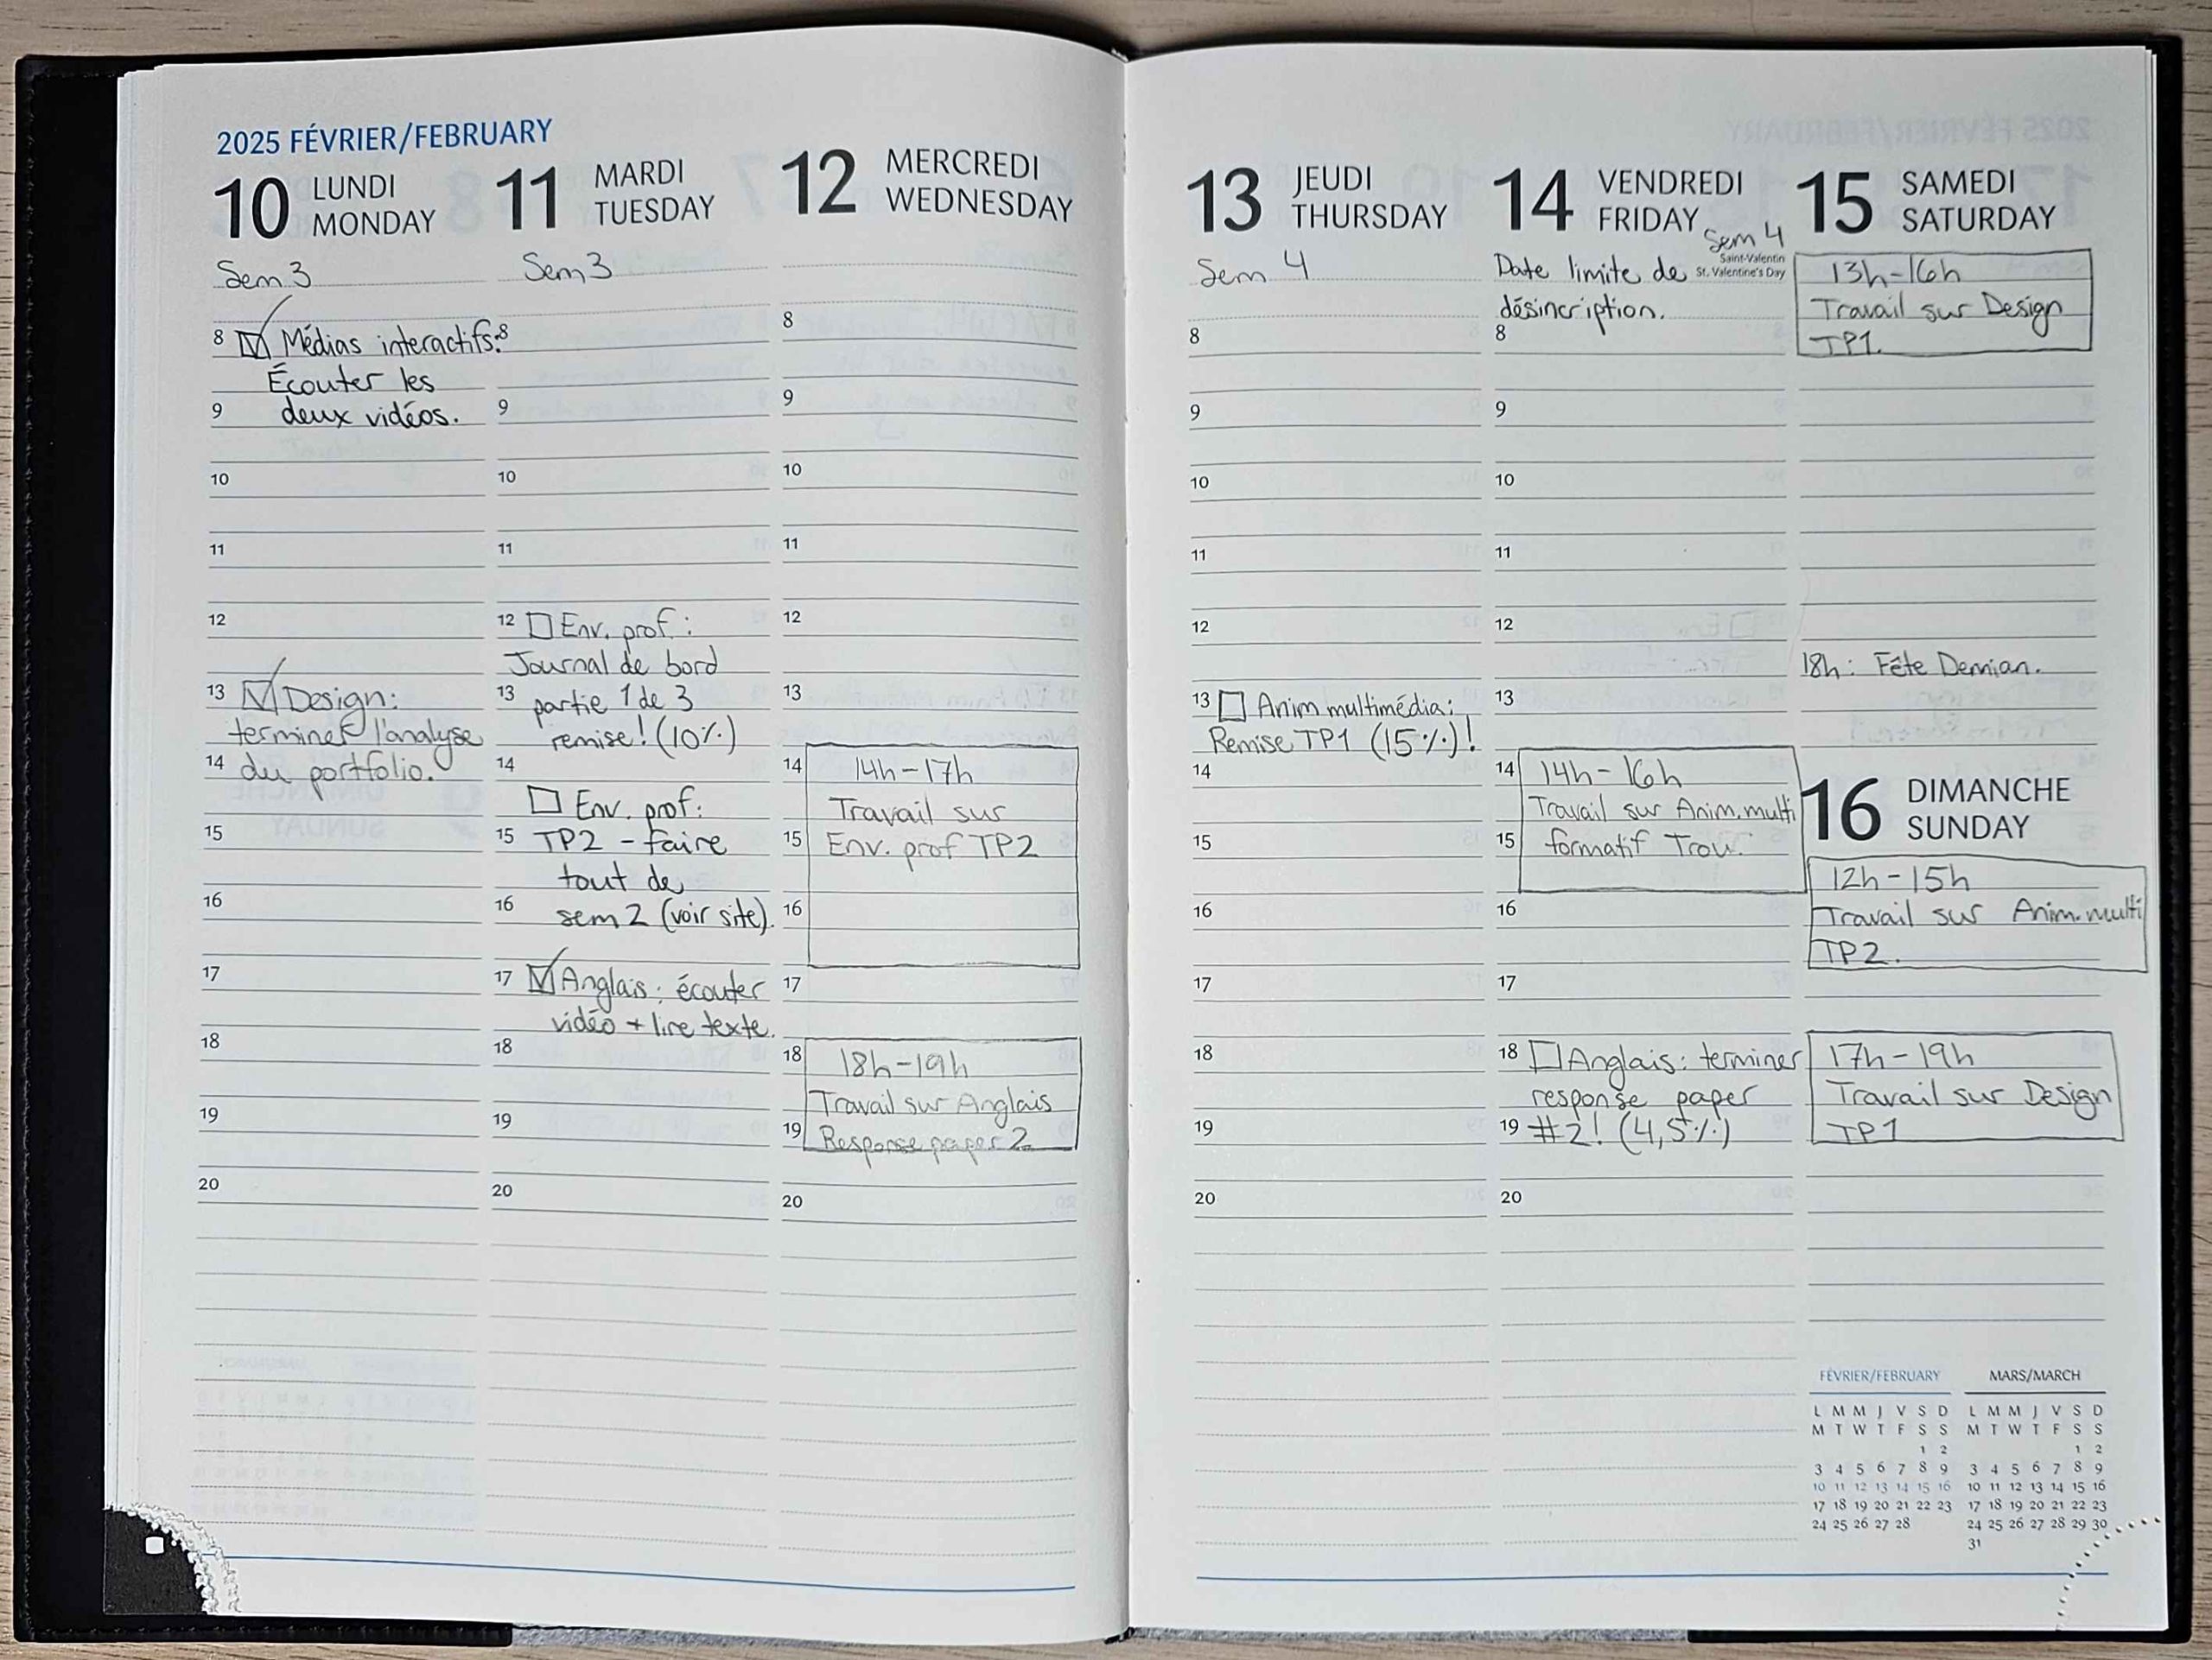 2025 FÉVRIER/FEBRUARY
10 LUNDI
MONDAY
Sem 3
8 Médias interactifs:
Écouter les
9 deux vidéos.
10
11
12
13 Design:
terminer l'analyse
14 du portfolio.
15
16
17
18
19
20
11 MARDI
TUESDAY
Sem 3
8
9
10
11
12 Env. prof.:
Journal de bord
13 partie 1 de 3
remise! (10%)
14
Env. prof:
15 TP2 - faire
tout de
16 sem 2 (voir site).
17 Anglais: écouter
vidéo + lire texte.
18
19
20
12 MERCREDI
WEDNESDAY
8
9
10
11
12
13
14 14h-17h
Travail sur
15 Env. prof TP2
16
17
18 18h-19h
Travail sur Anglais
19 Response paper 2
20
13 JEUDI
THURSDAY
Sem 4
8
9
10
11
12
13 Anim multimédia:
Remise TP1 (15%)!
14
15
16
17
18
19
20
14 VENDREDI
FRIDAY
Sem 4
Saint-Valentin
Date limite de St. Valentine's Day
désincription.
8
9
10
11
12
13
14 14h-16h
Travail sur Anim.multi
15 formatif Trou.
16
17
18 Anglais: terminer
response paper
19 #2! (4,5%)
20
15 SAMEDI
SATURDAY
13h-16h
Travail sur Design
TP1.
18h: Fête Demian.
16 DIMANCHE
SUNDAY
12h-15h
Travail sur Anim.multi
TP2.
17h-19h
Travail sur Design
TP1
FÉVRIER/FEBRUARY
L M M J V S D
M T W T F S S
1 2
3 4 5 6 7 8 9
10 11 12 13 14 15 16
17 18 19 20 21 22 23
24 25 26 27 28
MARS/MARCH
L M M J V S D
M T W T F S S
1 2
3 4 5 6 7 8 9
10 11 12 13 14 15 16
17 18 19 20 21 22 23
24 25 26 27 28 29 30
31